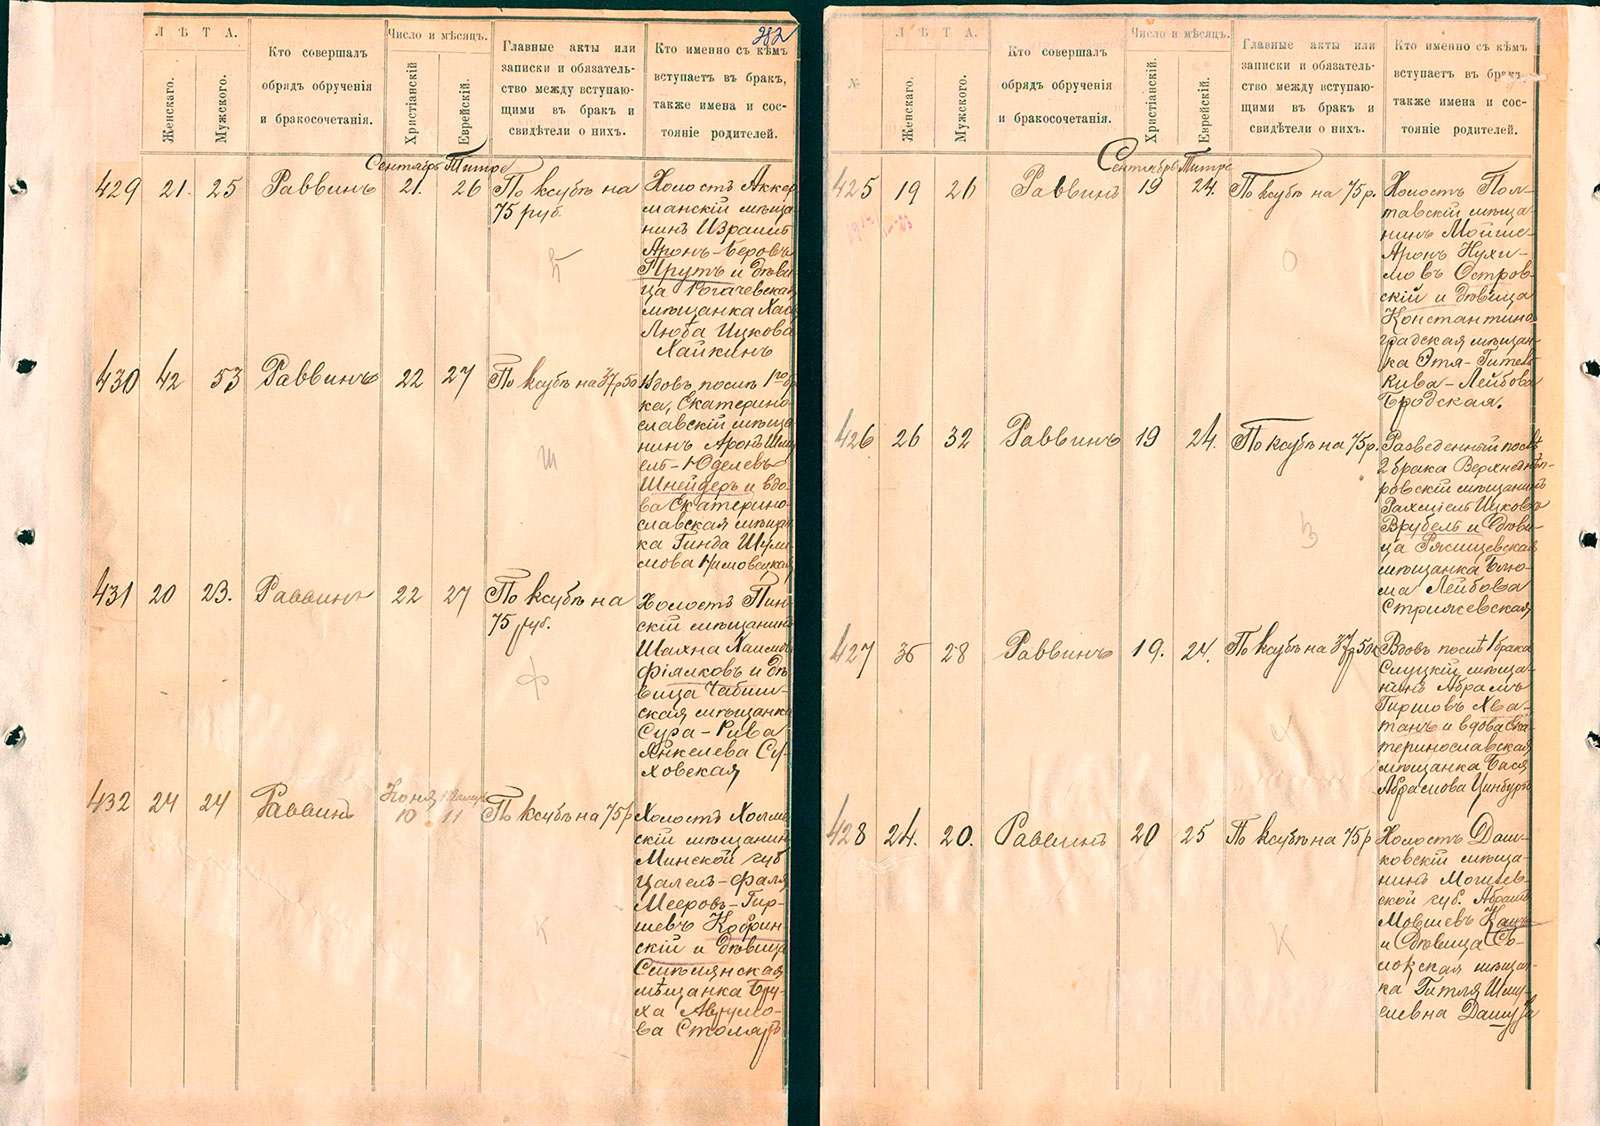 282
ЛѢТА.
Женскаго.
Мужского.
Кто совершалъ
обрядъ обрученія
и бракосочетанія.
Число и мѣсяцъ.
Христіанскій
Еврейскій.
Главные акты или
записки и обязатель-
ство между вступаю-
щими въ бракъ и
свидѣтели о нихъ.
Кто именно съ кѣмъ
вступаетъ въ бракъ,
также имена и сос-
тояніе родителей.
Сентябрь Тишре
429 21. 25 Раввинъ 21. 26 По ксубѣ на
75 руб.
Холостъ Аккер
манскій мѣща
нинъ Израиль
Аронъ-Беровъ
Прутъ и дѣви
ца Рогачевская
мѣщанка Хая
Люба Ицкова
Хайкинъ
430 42 53 Раввинъ 22 27 По ксубѣ на 37р50
Вдовъ послѣ 1го бра
ка, Екатерино
славскій мѣща
нинъ Аронъ Шму
ель-Юделевъ
Шнейдеръ и вдо-
ва Екатерино-
славская мѣщан
ка Гинда Шули
мова
ш
431 20 23. Раввинъ 22 27 По ксубѣ на
75 руб.
Холостъ Пин
скій мѣщанинъ
Шахна Хаимовъ
Фіалковъ и дѣ
вица
ская мѣщанка
Сура-Рива
Янкелева Су-
ховская
ф
432 24 24 Раввинъ
10 11 По ксубѣ на 75р
Холостъ
скій мѣщанинъ
Минской губ
Цалель-Фаля
Мееровъ-Гир-
шевъ Кобрин-
скій и дѣвица
Смѣлянская
мѣщанка Бру-
ха
ва Столяръ
к
№
ЛѢТА.
Женскаго.
Мужского.
Кто совершалъ
обрядъ обрученія
и бракосочетанія.
Число и мѣсяцъ.
Христіанскій.
Еврейскій.
Главные акты или
записки и обязатель-
ство между вступаю-
щими въ бракъ и
свидѣтели о нихъ.
Кто именно съ кѣмъ
вступаетъ въ бракъ
также имена и сос-
тояніе родителей.
Сентябрь Тишре
425 19 26 Раввинъ 19 24. По ксубѣ на 75р.
Холостъ Пол-
тавскій мѣща-
нинъ Мойше-
Аронъ Нухи-
мовъ Остров-
скій и дѣвица
Константино
градская мѣщан-
ка Этя-Гитель
Кива-Лейбова
Бродская.
о
426 26 32 Раввинъ 19 24. По ксубѣ на 75р.
Разведенный послѣ
2 брака Верхнеднѣп-
ровскій мѣщанинъ
Рахміель Ицковъ
Врубель и дѣви-
ца Ряснцевская
мѣщанка Блю-
ма Лейбова
Стрижевская
427 36 28 Раввинъ 19. 24. По ксубѣ на 37р50к
Вдовъ послѣ 1 брака
Слуцкій мѣща-
нинъ Абрамъ
Гиршовъ Хва-
танъ и вдова Ека-
теринославская
мѣщанка Бася
Абрамова
428 24. 20. Раввинъ 20 25 По ксубѣ на 75р
Холостъ Даш-
ковскій мѣща-
нинъ Могилев-
ской губ. Абрамъ
Мовшевъ Кацъ
и дѣвица
мѣщан-
ка Гитля Шму-
елевна
К